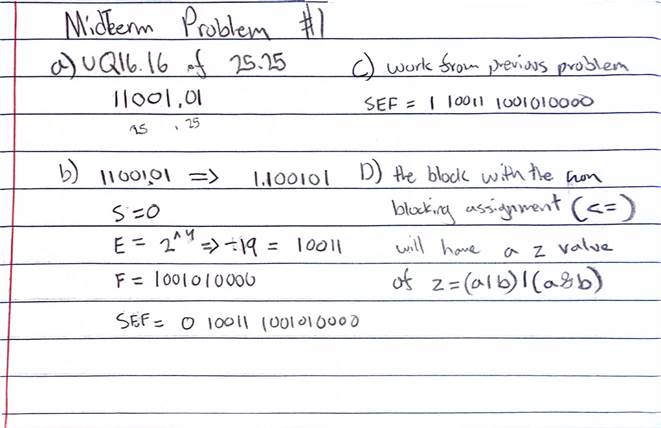 Midterm Problem #1
a) UQ16.16 of 25.25
11001.01
25 . 25
b) 11001.01 => 1.100101
S=0
E = 2^4 => ÷19 = 10011
F = 1001010000
SEF = 0 10011 1001010000
C) work from previous problem
SEF = 1 10011 1001010000
D) the block with the non
blocking assignment (<=)
will have a z value
of z=(a|b)|(a&b)